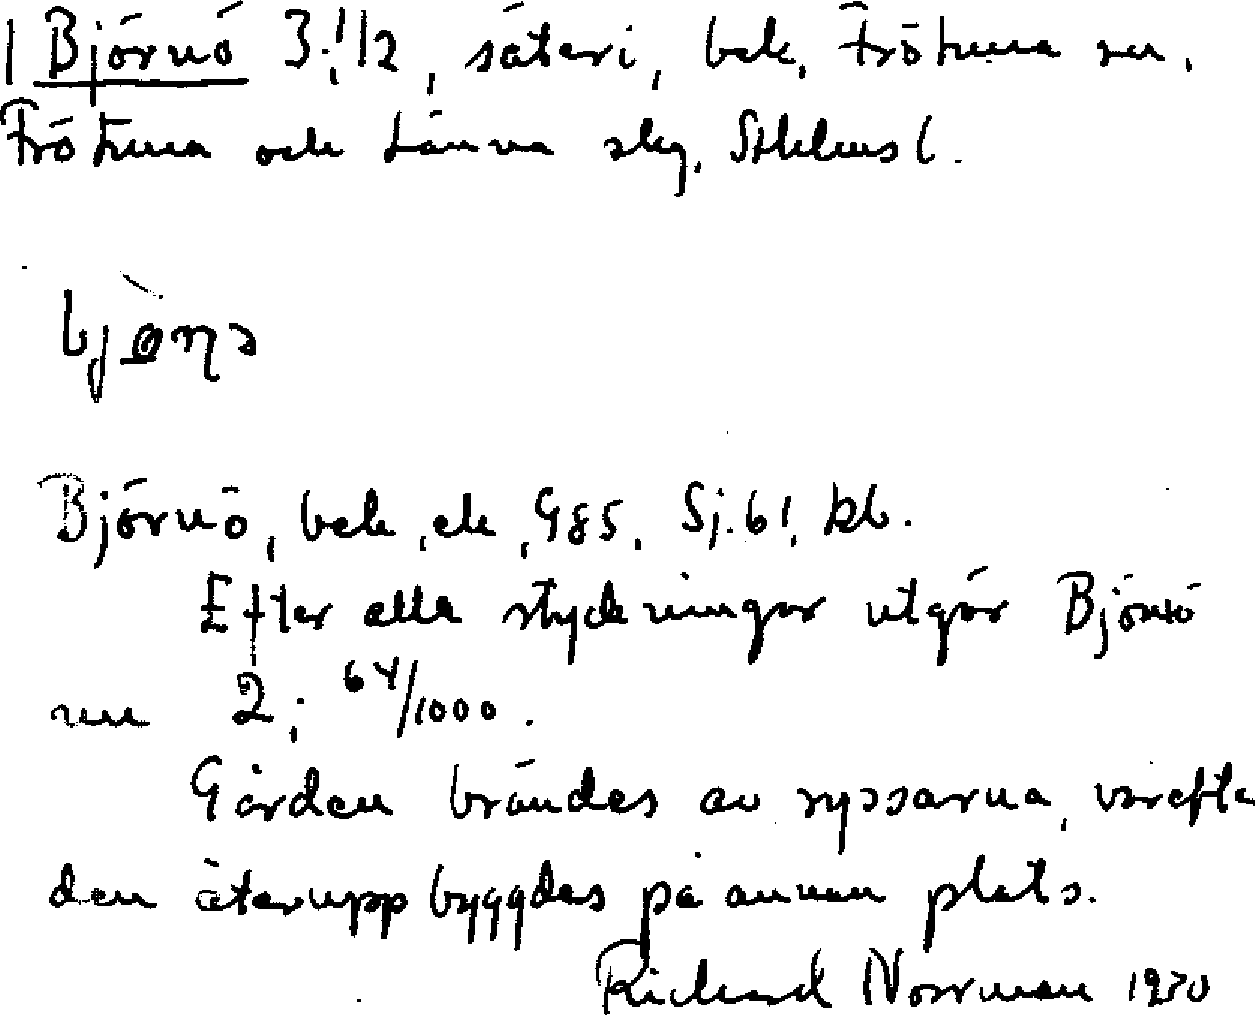 Björnö 3 1/2, säteri, bek, Frötuna sn.
Frötuna och Länna skg, Sthlms l.
bjö̀ηə
Björnö, bek, ek, G85, Sj.61, kb.
Efter alla styckningar utgör Björnö
nu 2; 64/1000.
Gården brändes av ryssarna, varefter
den återuppbyggdes på annan plats.
Richard Norrman 1930